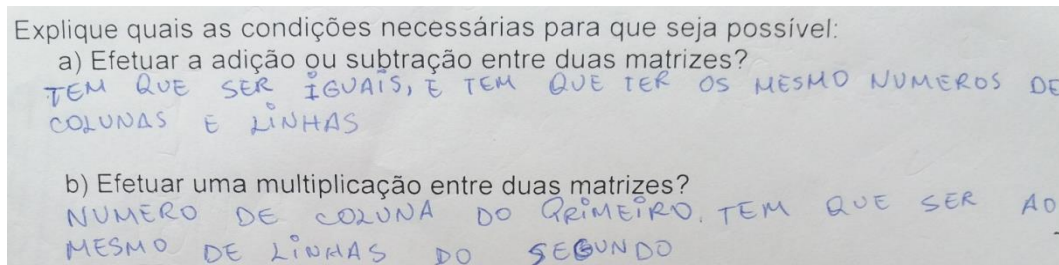 Explique quais as condições necessárias para que seja possível:
a) Efetuar a adição ou subtração entre duas matrizes?
TEM QUE SER IGUAIS, E TEM QUE TER OS MESMO NUMEROS DE
COLUNAS E LINHAS
b) Efetuar uma multiplicação entre duas matrizes?
NUMERO DE COLUNA DO PRIMEIRO. TEM QUE SER AO
MESMO DE LINHAS DO SEGUNDO